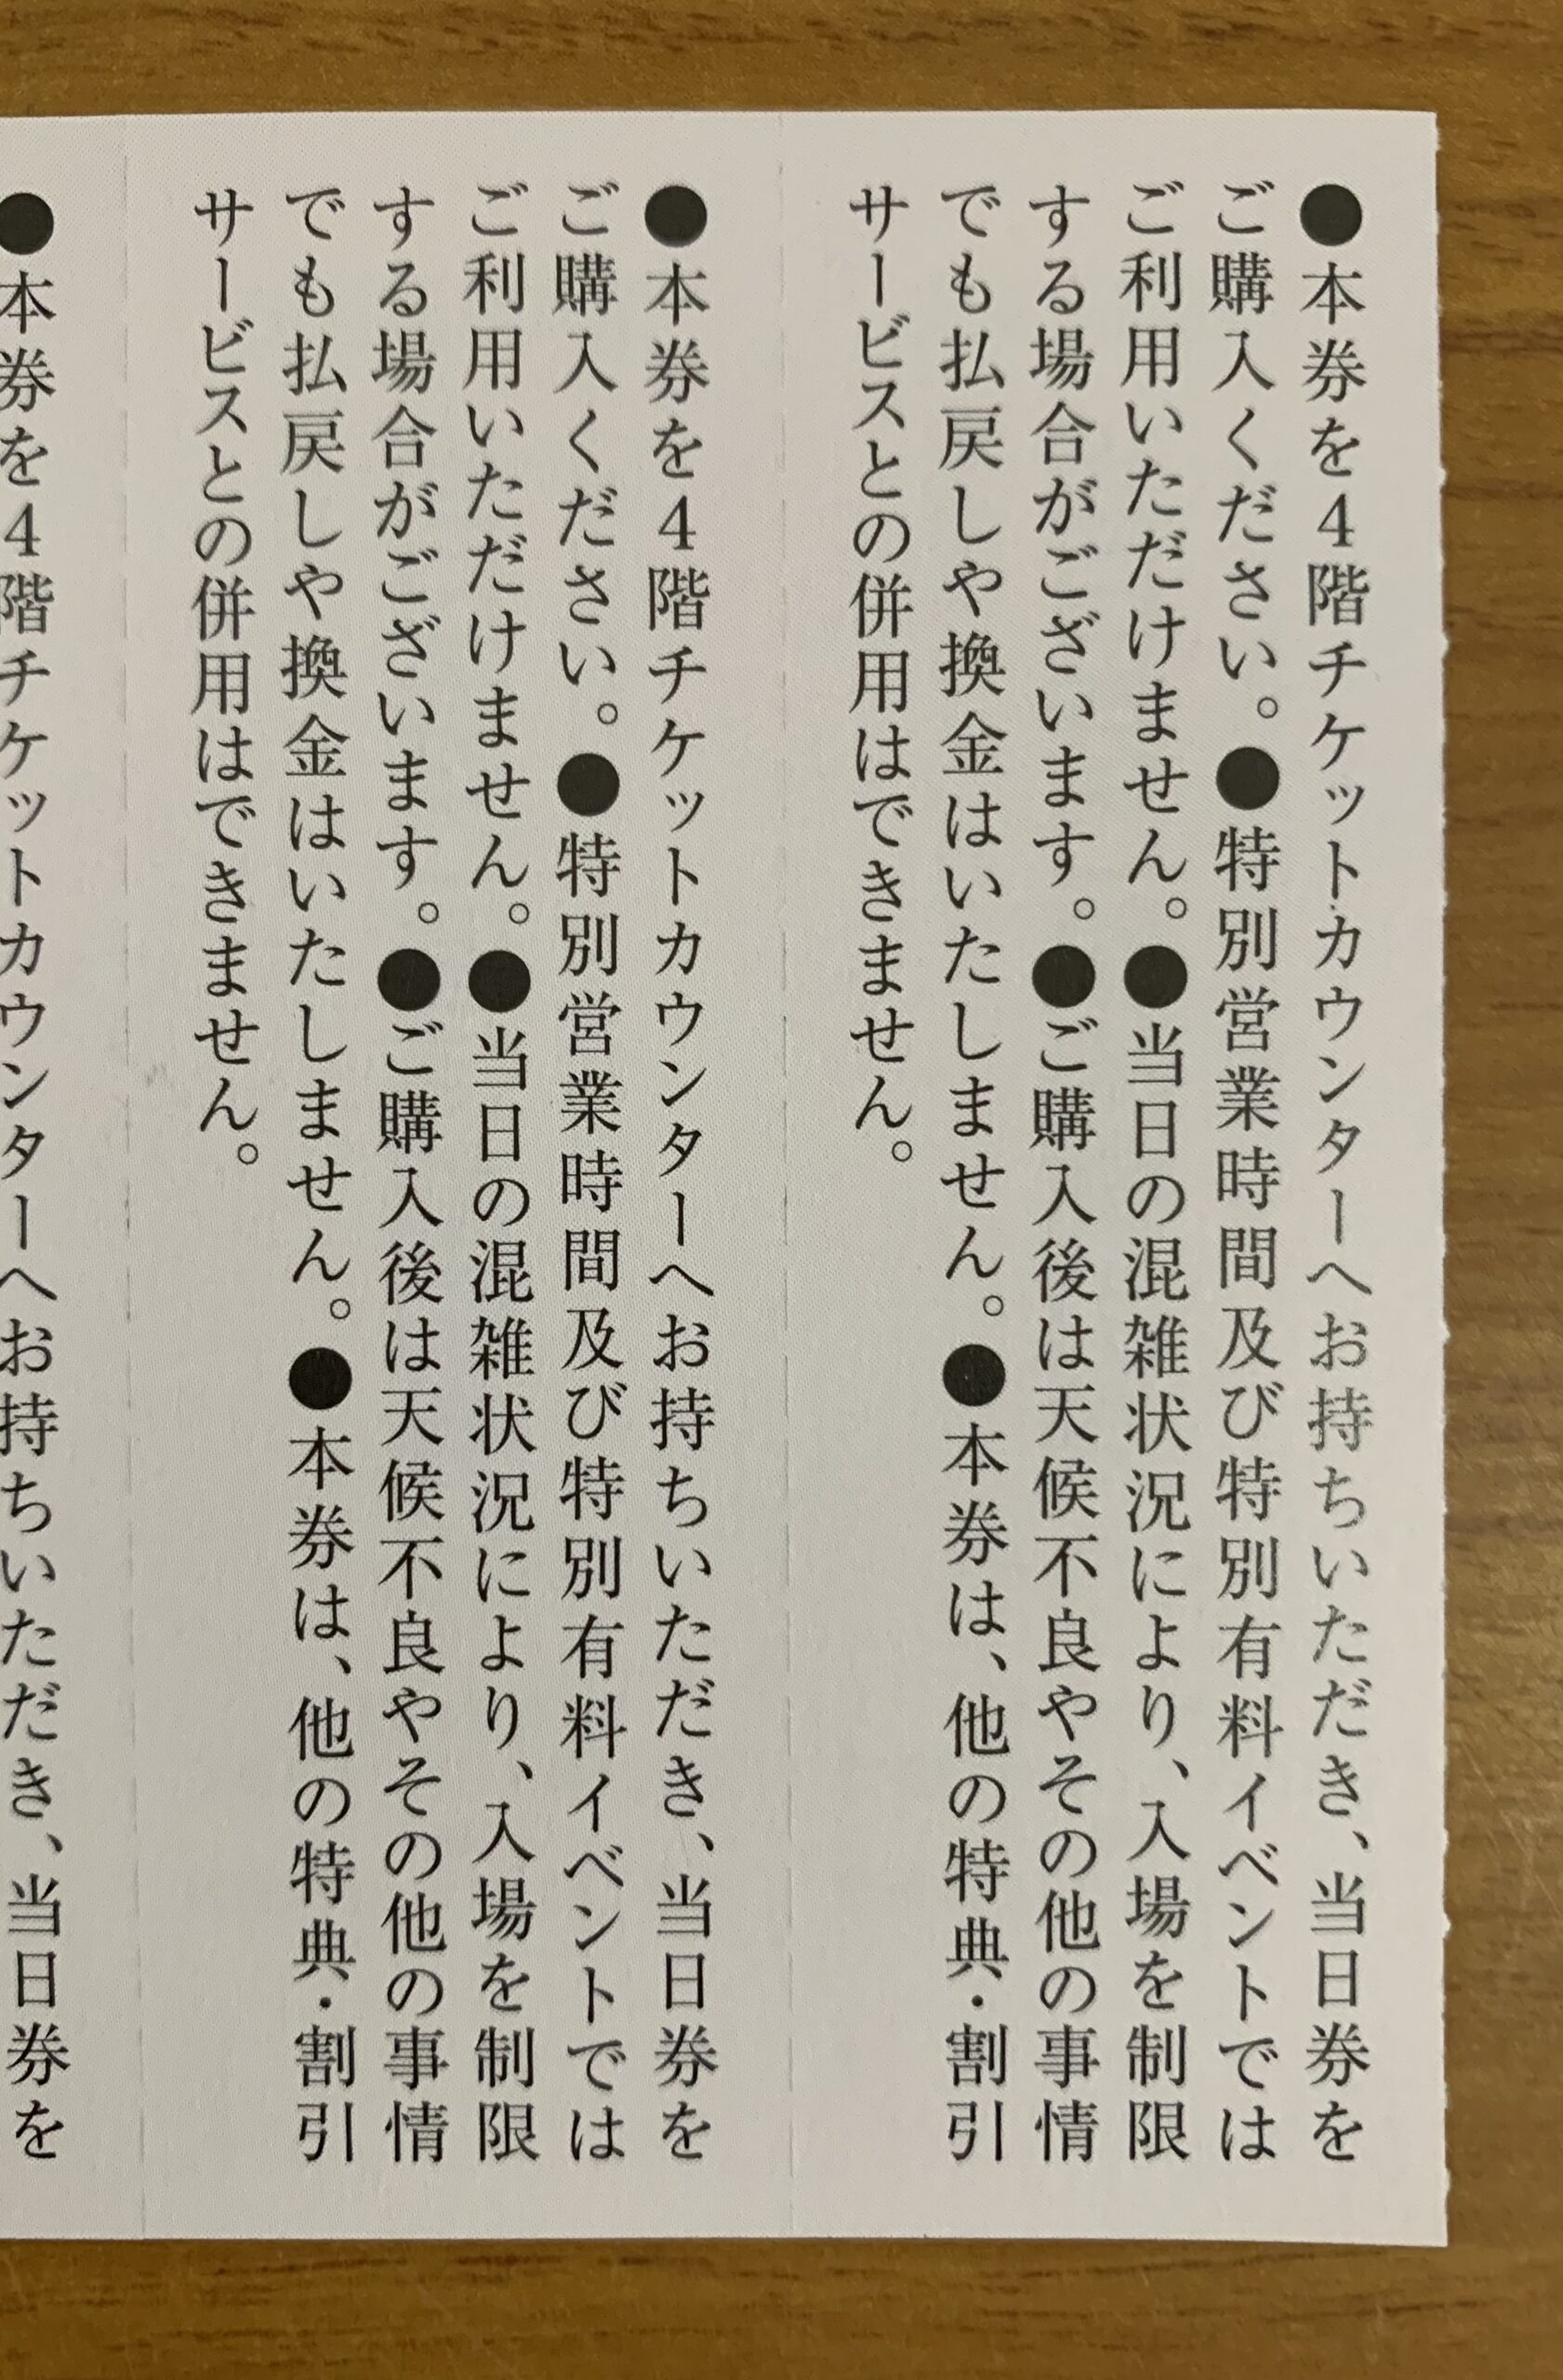 ●本券を4階チケットカウンターへお持ちいただき、当日券を
ご購入ください。●特別営業時間及び特別有料イベントでは
ご利用いただけません。●当日の混雑状況により、入場を制限
する場合がございます。●ご購入後は天候不良やその他の事情
でも払戻しや換金はいたしません。●本券は、他の特典・割引
サービスとの併用はできません。
●本券を4階チケットカウンターへお持ちいただき、当日券を
ご購入ください。●特別営業時間及び特別有料イベントでは
ご利用いただけません。●当日の混雑状況により、入場を制限
する場合がございます。●ご購入後は天候不良やその他の事情
でも払戻しや換金はいたしません。●本券は、他の特典・割引
サービスとの併用はできません。
●本券を4階チケットカウンターへお持ちいただき、当日券を